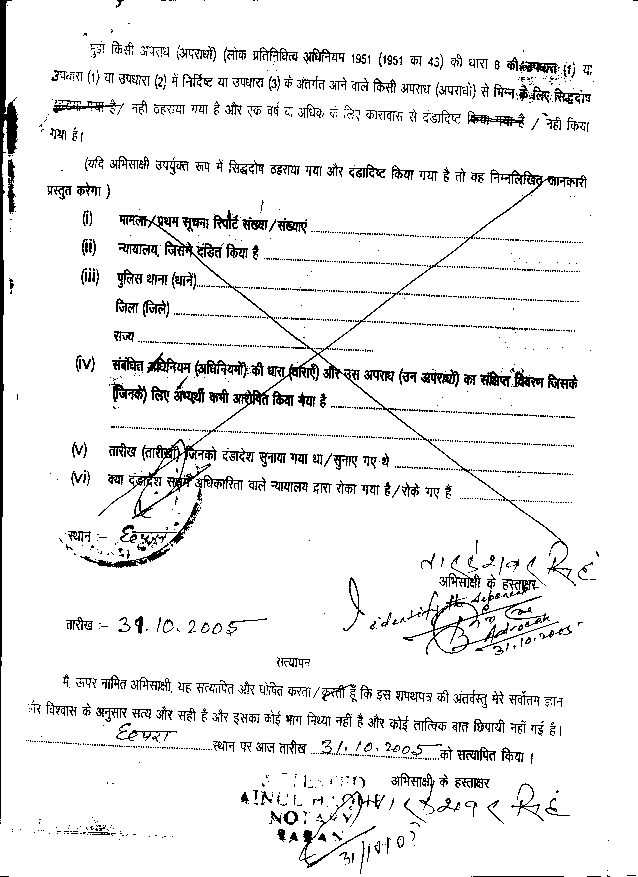 मुझे किसी अपराध (अपराधों) (लोक प्रतिनिधित्व अधिनियम 1951 (1951 का 43) की धारा 8 की उपधारा (1) या
उपधारा (1) या उपधारा (2) में निर्दिष्ट या उपधारा (3) के अंतर्गत आने वाले किसी अपराध (अपराधों) से भिन्न के लिए सिद्धदोष
ठहराया गया है/ नही ठहराया गया है और एक वर्ष या अधिक के लिए कारावास से दंडादिष्ट किया गया है / नही किया
गया है।
(यदि अभिसाक्षी उपर्युक्त रूप में सिद्धदोष ठहराया गया और दंडादिष्ट किया गया है तो वह निम्नलिखित जानकारी
प्रस्तुत करेगा )
(i) मामला/प्रथम सूचना रिपोर्ट संख्या/संख्याएं
(ii) न्यायालय, जिसमे दंडित किया है
(iii) पुलिस थाना (थाने)
जिला (जिले)
राज्य
(iv) संबंधित अधिनियम (अधिनियमों) की धारा (धाराएँ) और उस अपराध (उन अपराधों) का संक्षिप्त विवरण जिसके
(जिनके) लिए अभ्यर्थी कभी आरोपित किया गया है
(v) तारीख (तारीखों) जिनको दंडादेश सुनाया गया था/सुनाए गए थे
(vi) क्या दंडादेश सक्षम अधिकारिता वाले न्यायालय द्वारा रोका गया है/रोके गए हैं
स्थान :- छपरा
तारकेश्वर सिंह
अभिसाक्षी के हस्ताक्षर
Advocate
31.10.2005
तारीख :- 31.10.2005
सत्यापन
मै, ऊपर नामित अभिसाक्षी, यह सत्यापित और घोषित करता/करती हूँ कि इस शपथपत्र की अंतर्वस्तु मेरे सर्वोतम ज्ञान
और विश्वास के अनुसार सत्य और सही है और इसका कोई भाग मिथ्या नहीं है और कोई तात्विक बात छिपायी नहीं गई है।
छपरा स्थान पर आज तारीख 31.10.2005 को सत्यापित किया।
अभिसाक्षी के हस्ताक्षर
ATTESTED
तारकेश्वर सिंह
NOTARY
SARAN